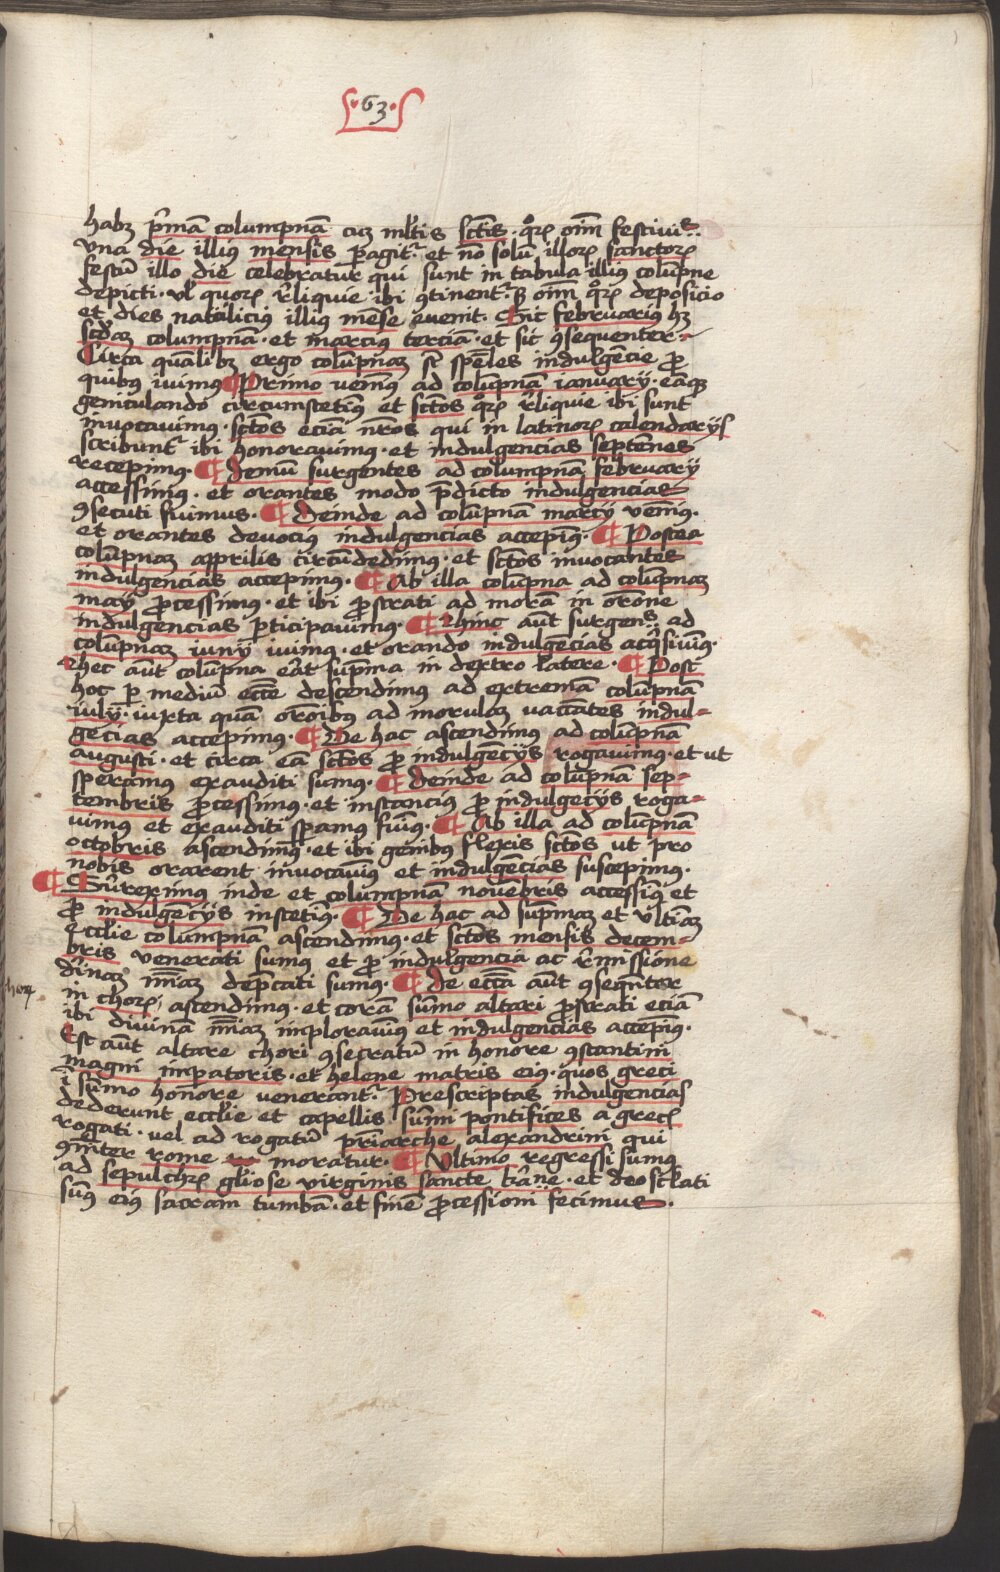 ·63·
habꝫ p̄mā columpnā cū ml̄tis sctīs· qꝝ oīm festiuit̄·
vna die illiꝰ mensis ꝑagit᷑· et nō solū illoꝝ sanctoꝝ
festū illo die celebratur qui sunt in tabula illiꝰ colūpne
depicti· vl̄ quoꝝ r̄liquie ibi ꝯtinent᷑· sꝫ oīm qꝝ deposicio
et dies nataliciꝰ illiꝰ mēse euenit· Sic februariꝰ hꝫ
scd̄am columpnā· et marciꝰ terciā· et sic ꝯsequenter·
Circa quālibꝫ ergo colūpnaꝫ st̄ spēles indulgēcie ꝓ
quibꝰ iuimꝰ ¶ Primo venimꝰ ad colūpnā ianuarij· eāqꝫ
geniculando circumstetimꝰ et sctōs qꝝ r̄liquie ibi sunt
inuocauimꝰ· sctōs eciā nr̄os qui in latinoꝝ calendarijs
scribunt᷑ ibi honorauimꝰ· et indulgencias septēnes
recepimꝰ· ¶ Demū surgentes ad columpnā februarij
accessimꝰ· et orantes modo p̄dicto indulgencias
ꝯsecuti fuimus· ¶ Deinde ad colūpnā marcij venimꝰ·
et orantes deuociꝰ indulgencias accepimꝰ· ¶ Postea
colūpnaꝫ apprilis circūdedimꝰ· et sctōs inuocantes
indulgencias accepimꝰ· ¶ Ab illa colūpna ad colūpnaꝫ
maij ꝓcessimꝰ· et ibi ꝓstrati ad morā in orōne
indulgencias ꝑticipauimꝰ· ¶ Hinc aūt surgens ad
colūpnaꝫ iunij iuimꝰ· et orando indulgēcias acq̄siuimꝰ·
Hec aūt colūpna erat sup̄ma in dextro latere· ¶ Post
hoc ꝑ mediū eccē descendimꝰ ad extremā columpnā
iulij· iuxta quā orōibꝰ ad morulaꝫ vacātes indul-
gēcias accepimꝰ· ¶ De hac ascendimꝰ ad colūpnā
augusti· et circa eā sctōs ꝓ indulgēcijs rogauimꝰ· et ut
speramus exauditi sumus· ¶ Deinde ad colūpnā sep-
tembris ꝓcessimꝰ· et instanciꝰ ꝓ indulgēcijs roga-
uimꝰ et exauditi sperāmꝰ fuimꝰ· ¶ Ab illa ad colūpnā
octobris ascendimꝰ· et ibi genibꝰ flexis sctōs ut pro
nobis orarent inuocauimꝰ et indulgēcias suscepimꝰ·
¶ Surreximꝰ inde et columpnā nouēbris accessimꝰ et
ꝓ indulgēcijs institimꝰ· ¶ De hac ad sup̄maꝫ et vltimā
eccl̄ie columpnā ascendimꝰ· et sctōs mensis decem-
bris venerati sumus et ꝓ indulgencia ac r̄missione
diuinaꝫ mīaꝫ dep̄cati sumus· ¶ De eccā aūt ꝯseqnter
in choꝝ ascendimꝰ· et corā sūmo altari ꝓstrati eciā
ibi diuinā mīaꝫ implorauimꝰ et indulgencias accepimꝰ·
Est aūt altare chori ꝯsecratū in honore ꝯstantini
magni imꝑatoris· et helene matris eiꝰ· quos greci
ī sūmo honore venerant᷑· Prescriptas indulgencias
dederunt eccl̄ie et capellis sūmi pontifices a grecꝭ
rogati· vel ad rogatū pr̄iarche alexandrini qui
ꝯmīter rome moratur· ¶ Vltimo regressi sumꝰ
ad sepulchꝝ gl̄iose virginis sancte kr̄ine· et deosclati
sumꝰ eiꝰ sacram tumbā· et finē ꝓcessioni fecimus·